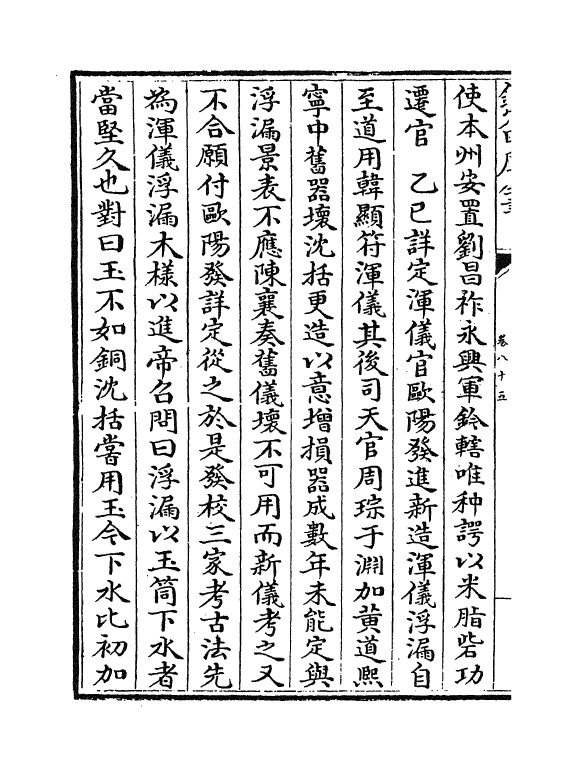 使本州安置劉昌祚永興軍鈐轄唯种諤以米脂砦功
遷官　乙巳詳定渾儀官歐陽發進新造渾儀浮漏自
至道用韓顯符渾儀其後司天官周琮于淵加黄道熈
寧中舊器壞沈括更造以意增損器成數年未能定與
浮漏景表不應陳襄奏舊儀壞不可用而新儀考之又
不合願付歐陽發詳定從之於是發校三家考古法先
為渾儀浮漏木様以進帝召問曰浮漏以玉筒下水者
當堅久也對曰玉不如銅沈括嘗用玉今下水比初加
卷八十五